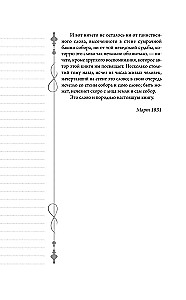 И вот ничего не осталось ни от таинствен-
ного слова, высеченного в стене сумрачной
башни собора, ни от той неведомой судьбы, ко-
торую это слово так печально обозначало, — ни-
чего, кроме хрупкого воспоминания, которое ав-
тор этой книги им посвящает. Несколько столе-
тий тому назад исчез из числа живых человек,
начертавший на стене это слово; в свою очередь
исчезло со стены собора и само слово; быть мо-
жет, исчезнет скоро с лица земли и сам собор.
Это слово и породило настоящую книгу.
Март 1831